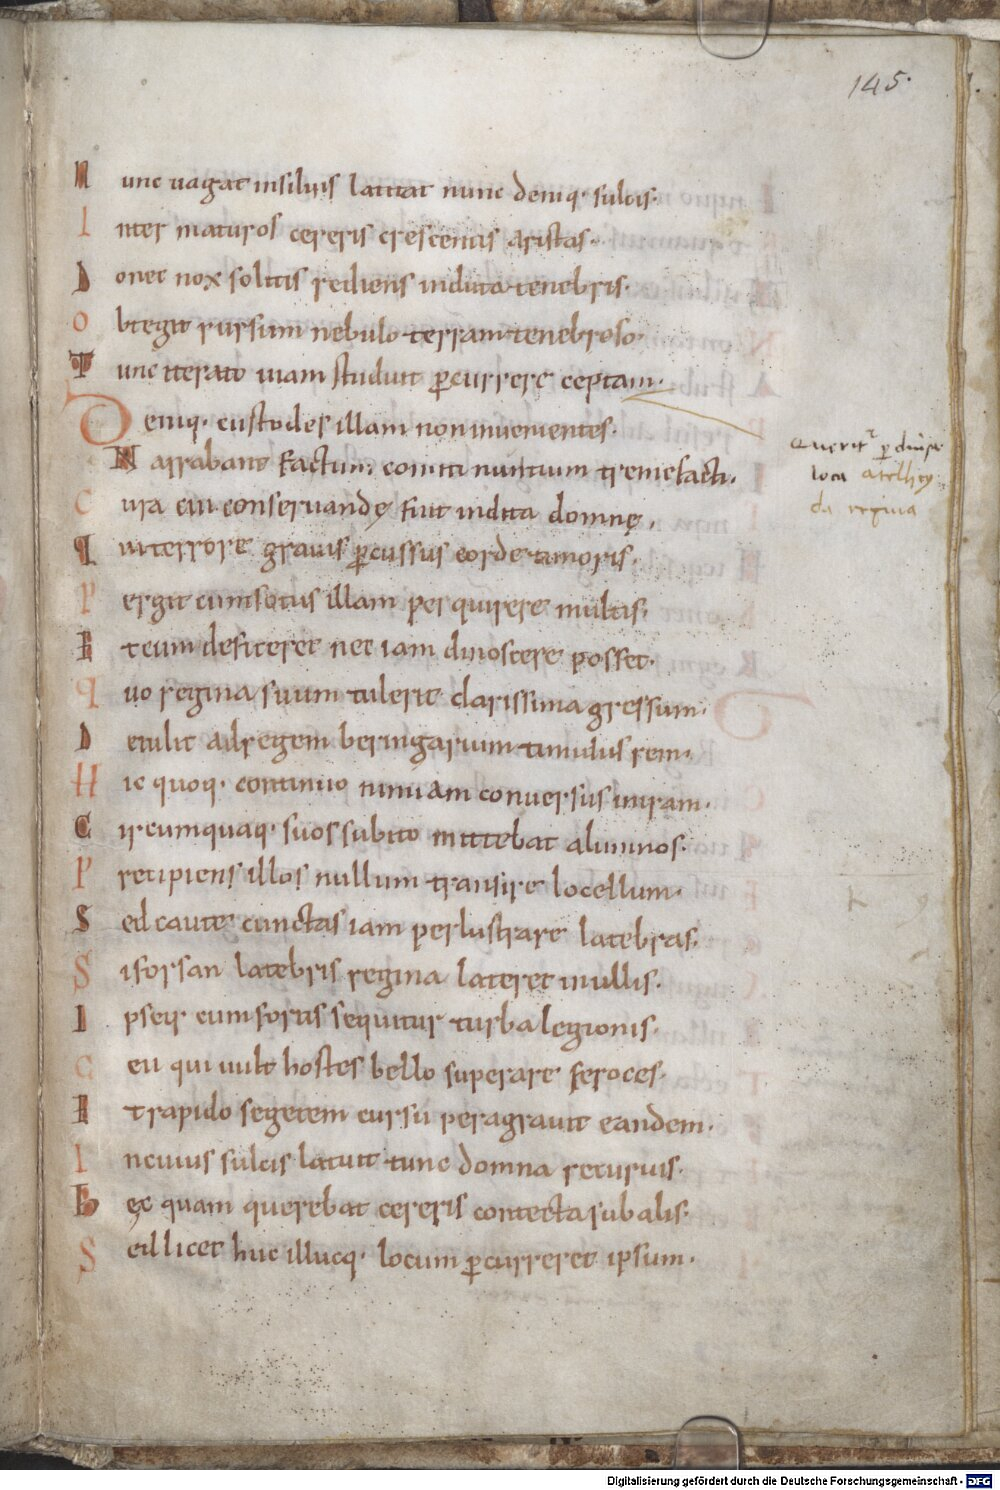 145.
Nunc uagat insiluis latitat nunc deniq· sulcis·
Inter maturos cereris crescentis aristas·
Donec nox solitis rediens induta tenebris·
obtegit rursum nebulo terram tenebroso·
Tunc iterato uiam studuit pcurrere ceptam·
Deniq· custodes illam non inuenientes·
Narrabant factum comiti nimium tremefacti·
Cura cui conseruandę fuit indita domnę,
qui terrore grauis pcussus corde timoris·
Pergit cum sotiis illam perquirere multis;
Et cum deficeret nec iam dinoscere posset·
quo regina suum tulerit clarissima gressum·
Detulit ad regem beringarium timidus rem·
Hic quoq· continuo nimiam conuersus iniram·
Circumquaq· suos subito mittebat alumnos·
Precipiens illos nullum transire locellum·
Sed caute cunctas iam perlustrare latebras;
Si forsan latebris regina lateret in ullis·
Ipse &r cum fortis sequitur turba legionis·
Ceu qui uult hostes bello superare feroces·
Et rapido segetem cursu peragrauit eandem·
In cuius sulcis latuit tunc domna recuruis·
Hęc quam querebat cereris contecta sub alis;
Sed licet huc illucq· locum pcurreret ipsum·
Querit' p diuisa
loca atelhey
da regina
Digitalisierung gefördert durch die Deutsche Forschungsgemeinschaft - DFG